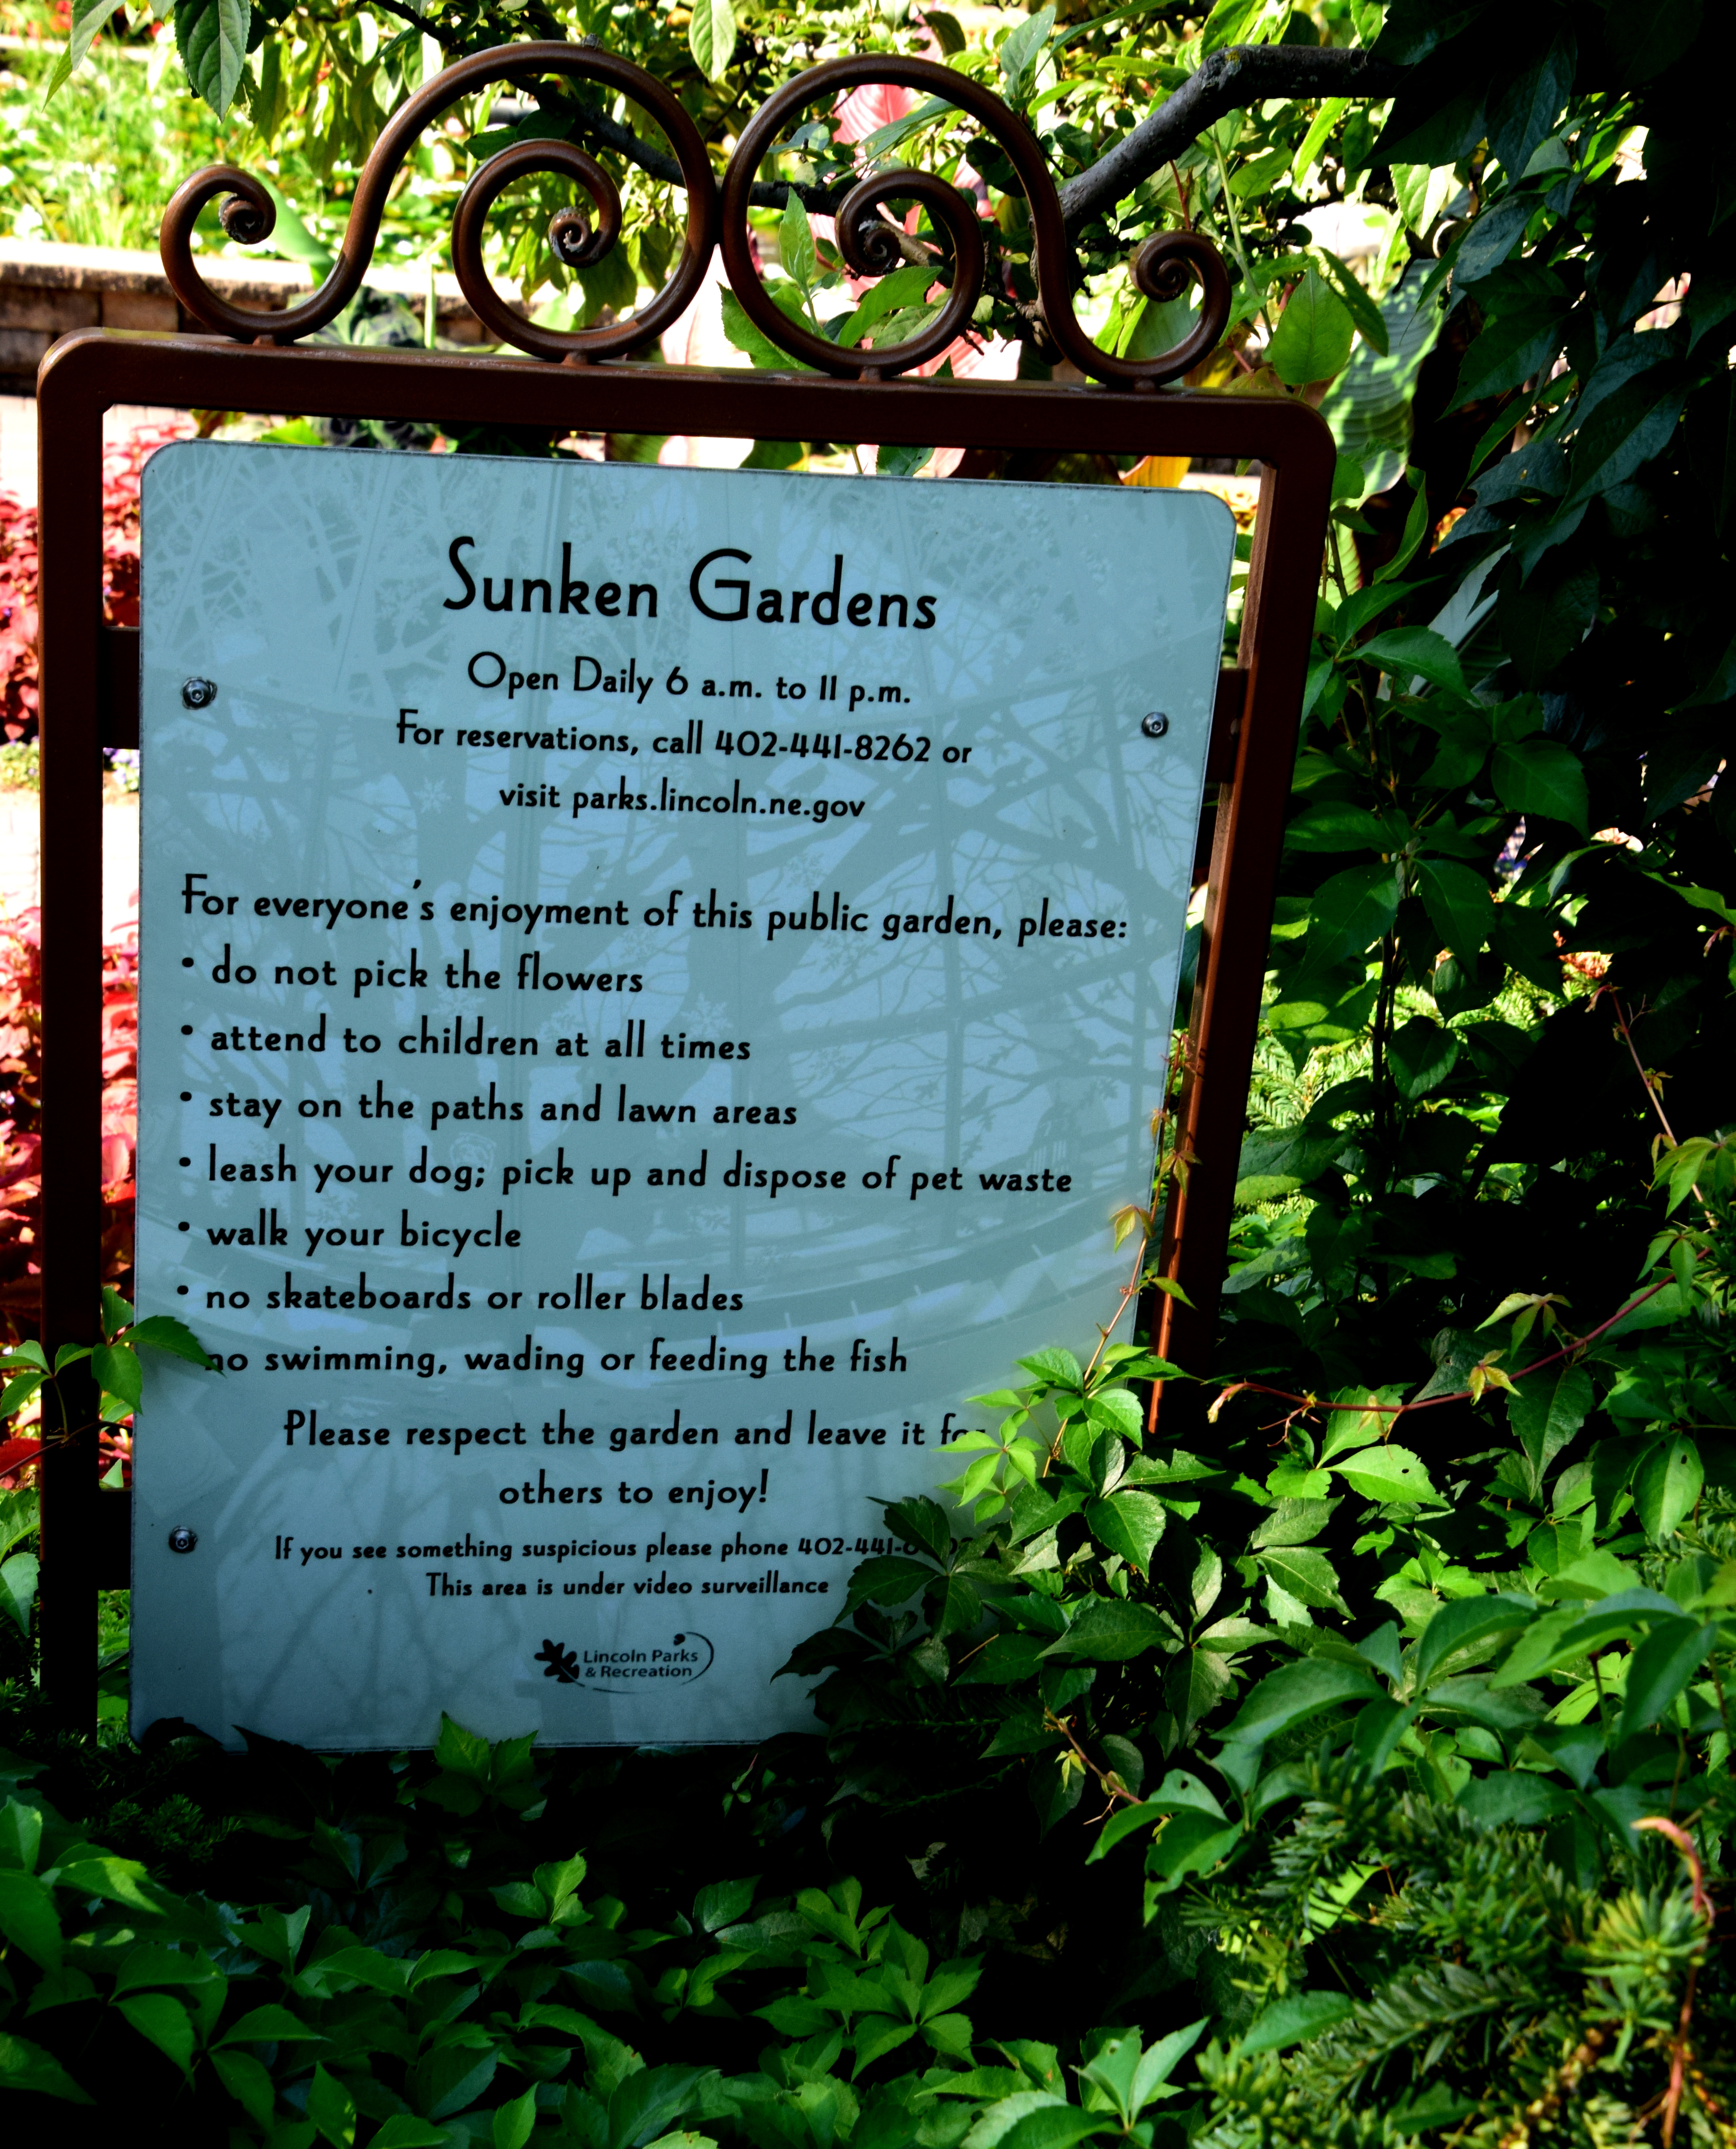 Sunken Gardens
Open Daily 6 a.m. to 11 p.m.
For reservations, call 402-441-8262 or
visit parks.lincoln.ne.gov
For everyone's enjoyment of this public garden, please:
• do not pick the flowers
• attend to children at all times
• stay on the paths and lawn areas
• leash your dog; pick up and dispose of pet waste
• walk your bicycle
• no skateboards or roller blades
no swimming, wading or feeding the fish
Please respect the garden and leave it for
others to enjoy!
If you see something suspicious please phone
This area is under video surveillance
Lincoln Parks
& Recreation